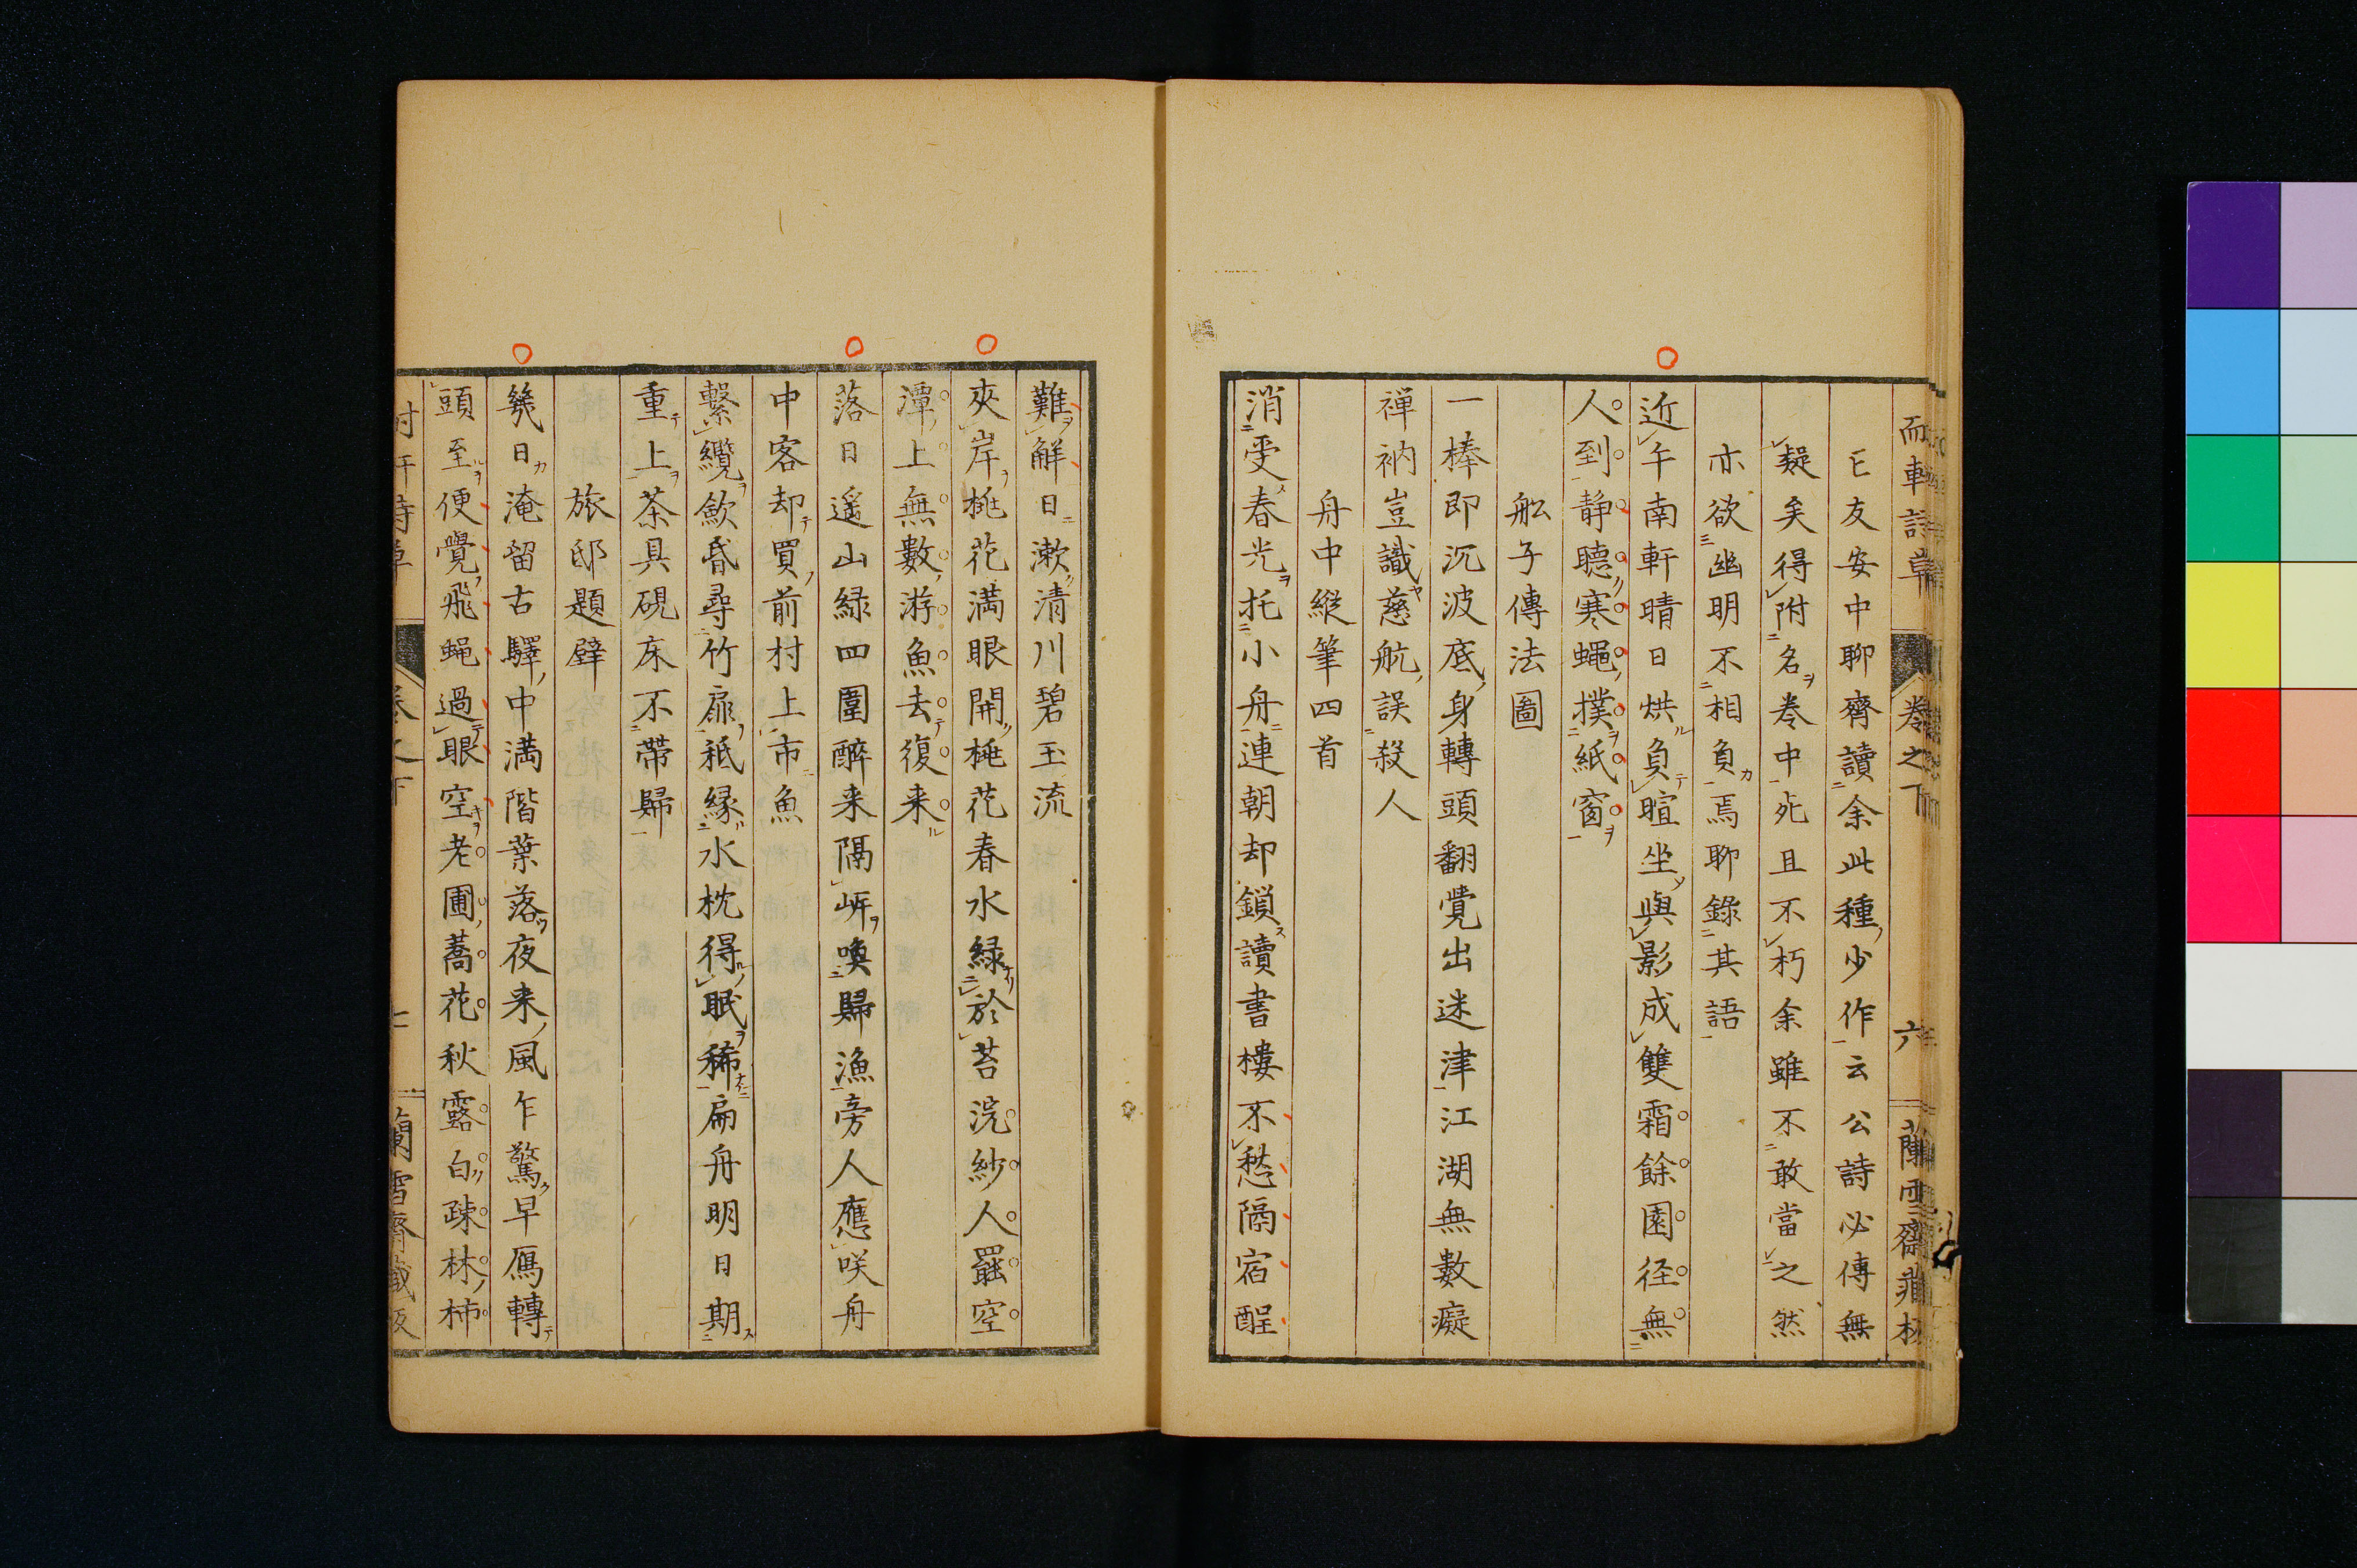 亡友安中聊齋讀余此種少作云公詩必傳無
疑矣得附名卷中死且不朽余雖不敢當之然
亦欲幽明不相負焉聊錄其語
近午南軒晴日烘負暄坐與影成雙霜餘園径無
人到静聴寒蠅撲紙窗
舩子傳法圖
一棒即沉波底身轉頭翻覺出迷津江湖無數癡
禅衲豈識慈航誤殺人
舟中縱筆四首
消受春光托小舟連朝却鎖讀書樓不愁隔宿酲
難解日漱清川碧玉流
夾岸桃花満眼開桃花春水緑於苔浣紗人罷空
潭上無數游魚去復来
落日遥山緑四圍醉来隔岍喚歸漁旁人應咲舟
中客却買前村上市魚
繋纜歛昏尋竹扉秖縁水枕得眠稀扁舟明日期
重上茶具硯床不帶歸
旅邸題壁
幾日淹留古驛中満階葉落夜来風乍驚早鴈轉
頭至便覺飛蝇過眼空老圃蕎花秋露白疎林柿
卷之下
六